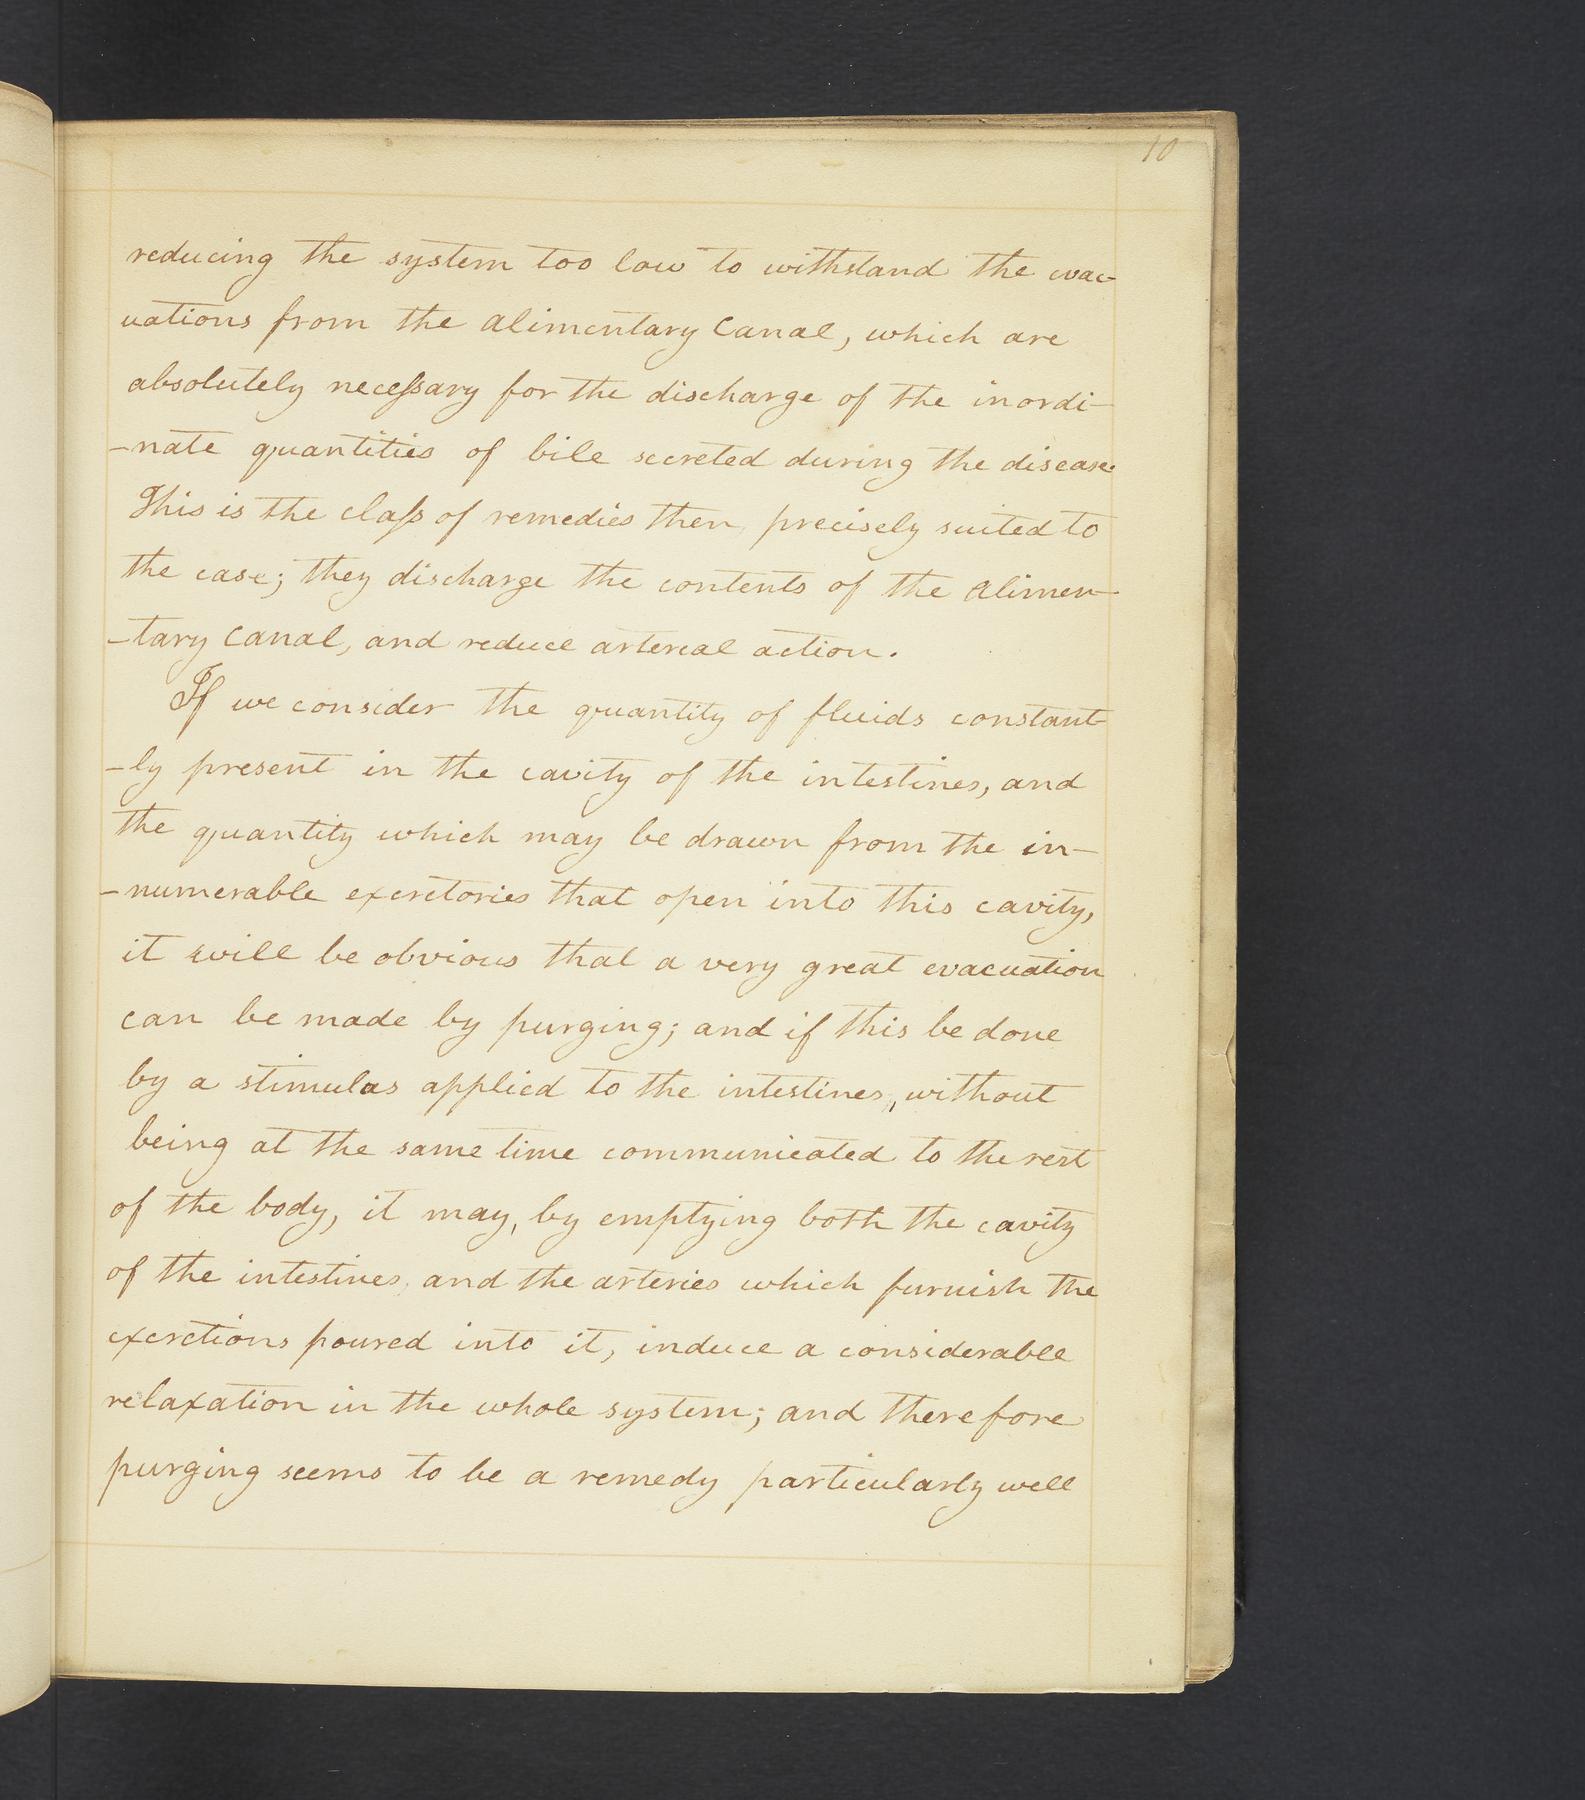 10
reducing the system too low to withstand the evac-
uations from the alimentary Canal, which are
absolutely neceſsary for the discharge of the inordi-
-nate quantities of bile secreted during the disease.
This is the claſs of remedies then precisely suited to
the case; they discharge the contents of the alimen-
-tary Canal, and reduce artereal action.
If we consider the quantity of fluids constant-
-ly present in the cavity of the intestines, and
the quantity which may be drawn from the in-
-numerable excretories that open into this cavity,
it will be obvious that a very great evacuation
can be made by purging; and if this be done
by a stimulas applied to the intestines, without
being at the same time communicated to the rest
of the body, it may, by emptying both the cavity
of the intestines, and the arteries which furnish the
excretions poured into it, induce a considerable
relaxation in the whole system; and therefore
purging seems to be a remedy particularly well